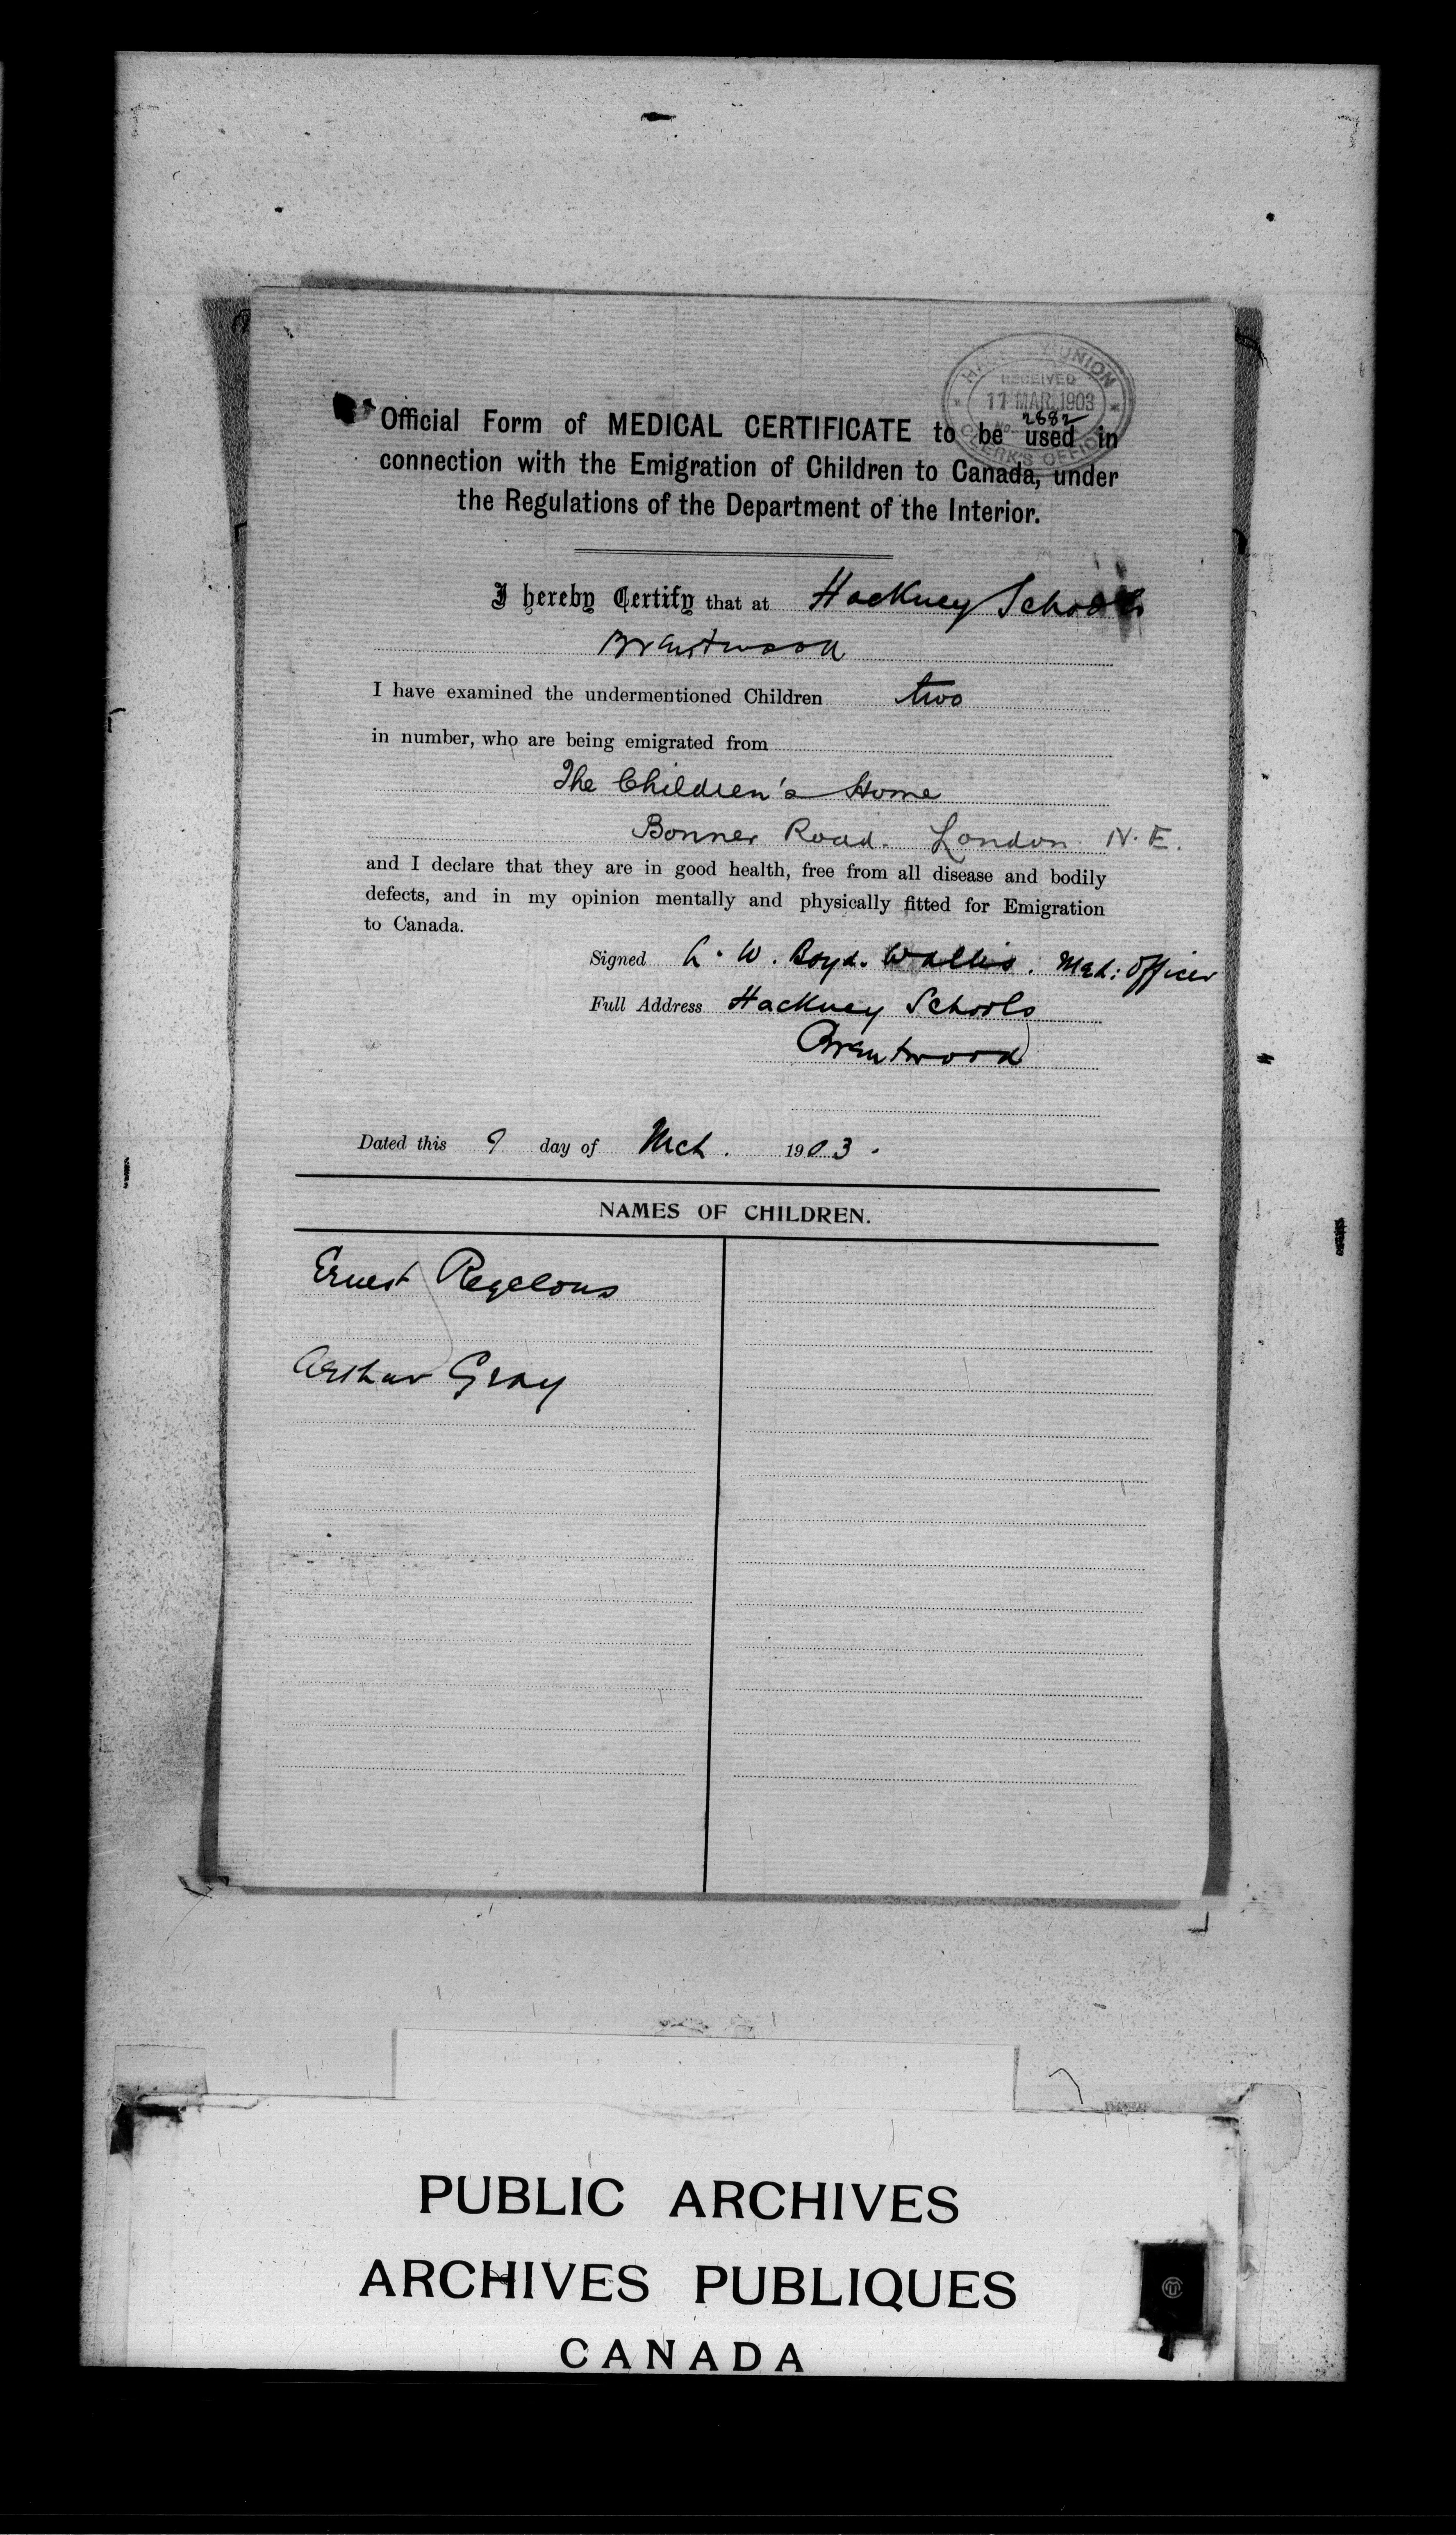 HACKNEY UNION
RECEIVED
17 MAR. 1903
No. 2682
CLERK'S OFFICE
Official Form of MEDICAL CERTIFICATE to be used in
connection with the Emigration of Children to Canada, under
the Regulations of the Department of the Interior.
I hereby Certify that at Hackney Schools
Brentwood
I have examined the undermentioned Children two
in number, who are being emigrated from
The Children's Home
Bonner Road. London N. E.
and I declare that they are in good health, free from all disease and bodily
defects, and in my opinion mentally and physically fitted for Emigration
to Canada.
Signed W. Boyd. Wallis. Med: Officer
Full Address Hackney Schools
Brentwood
Dated this 9 day of Mch. 1903.
NAMES OF CHILDREN.
Ernest Regelous
Arthur Gray
PUBLIC ARCHIVES
ARCHIVES PUBLIQUES
CANADA